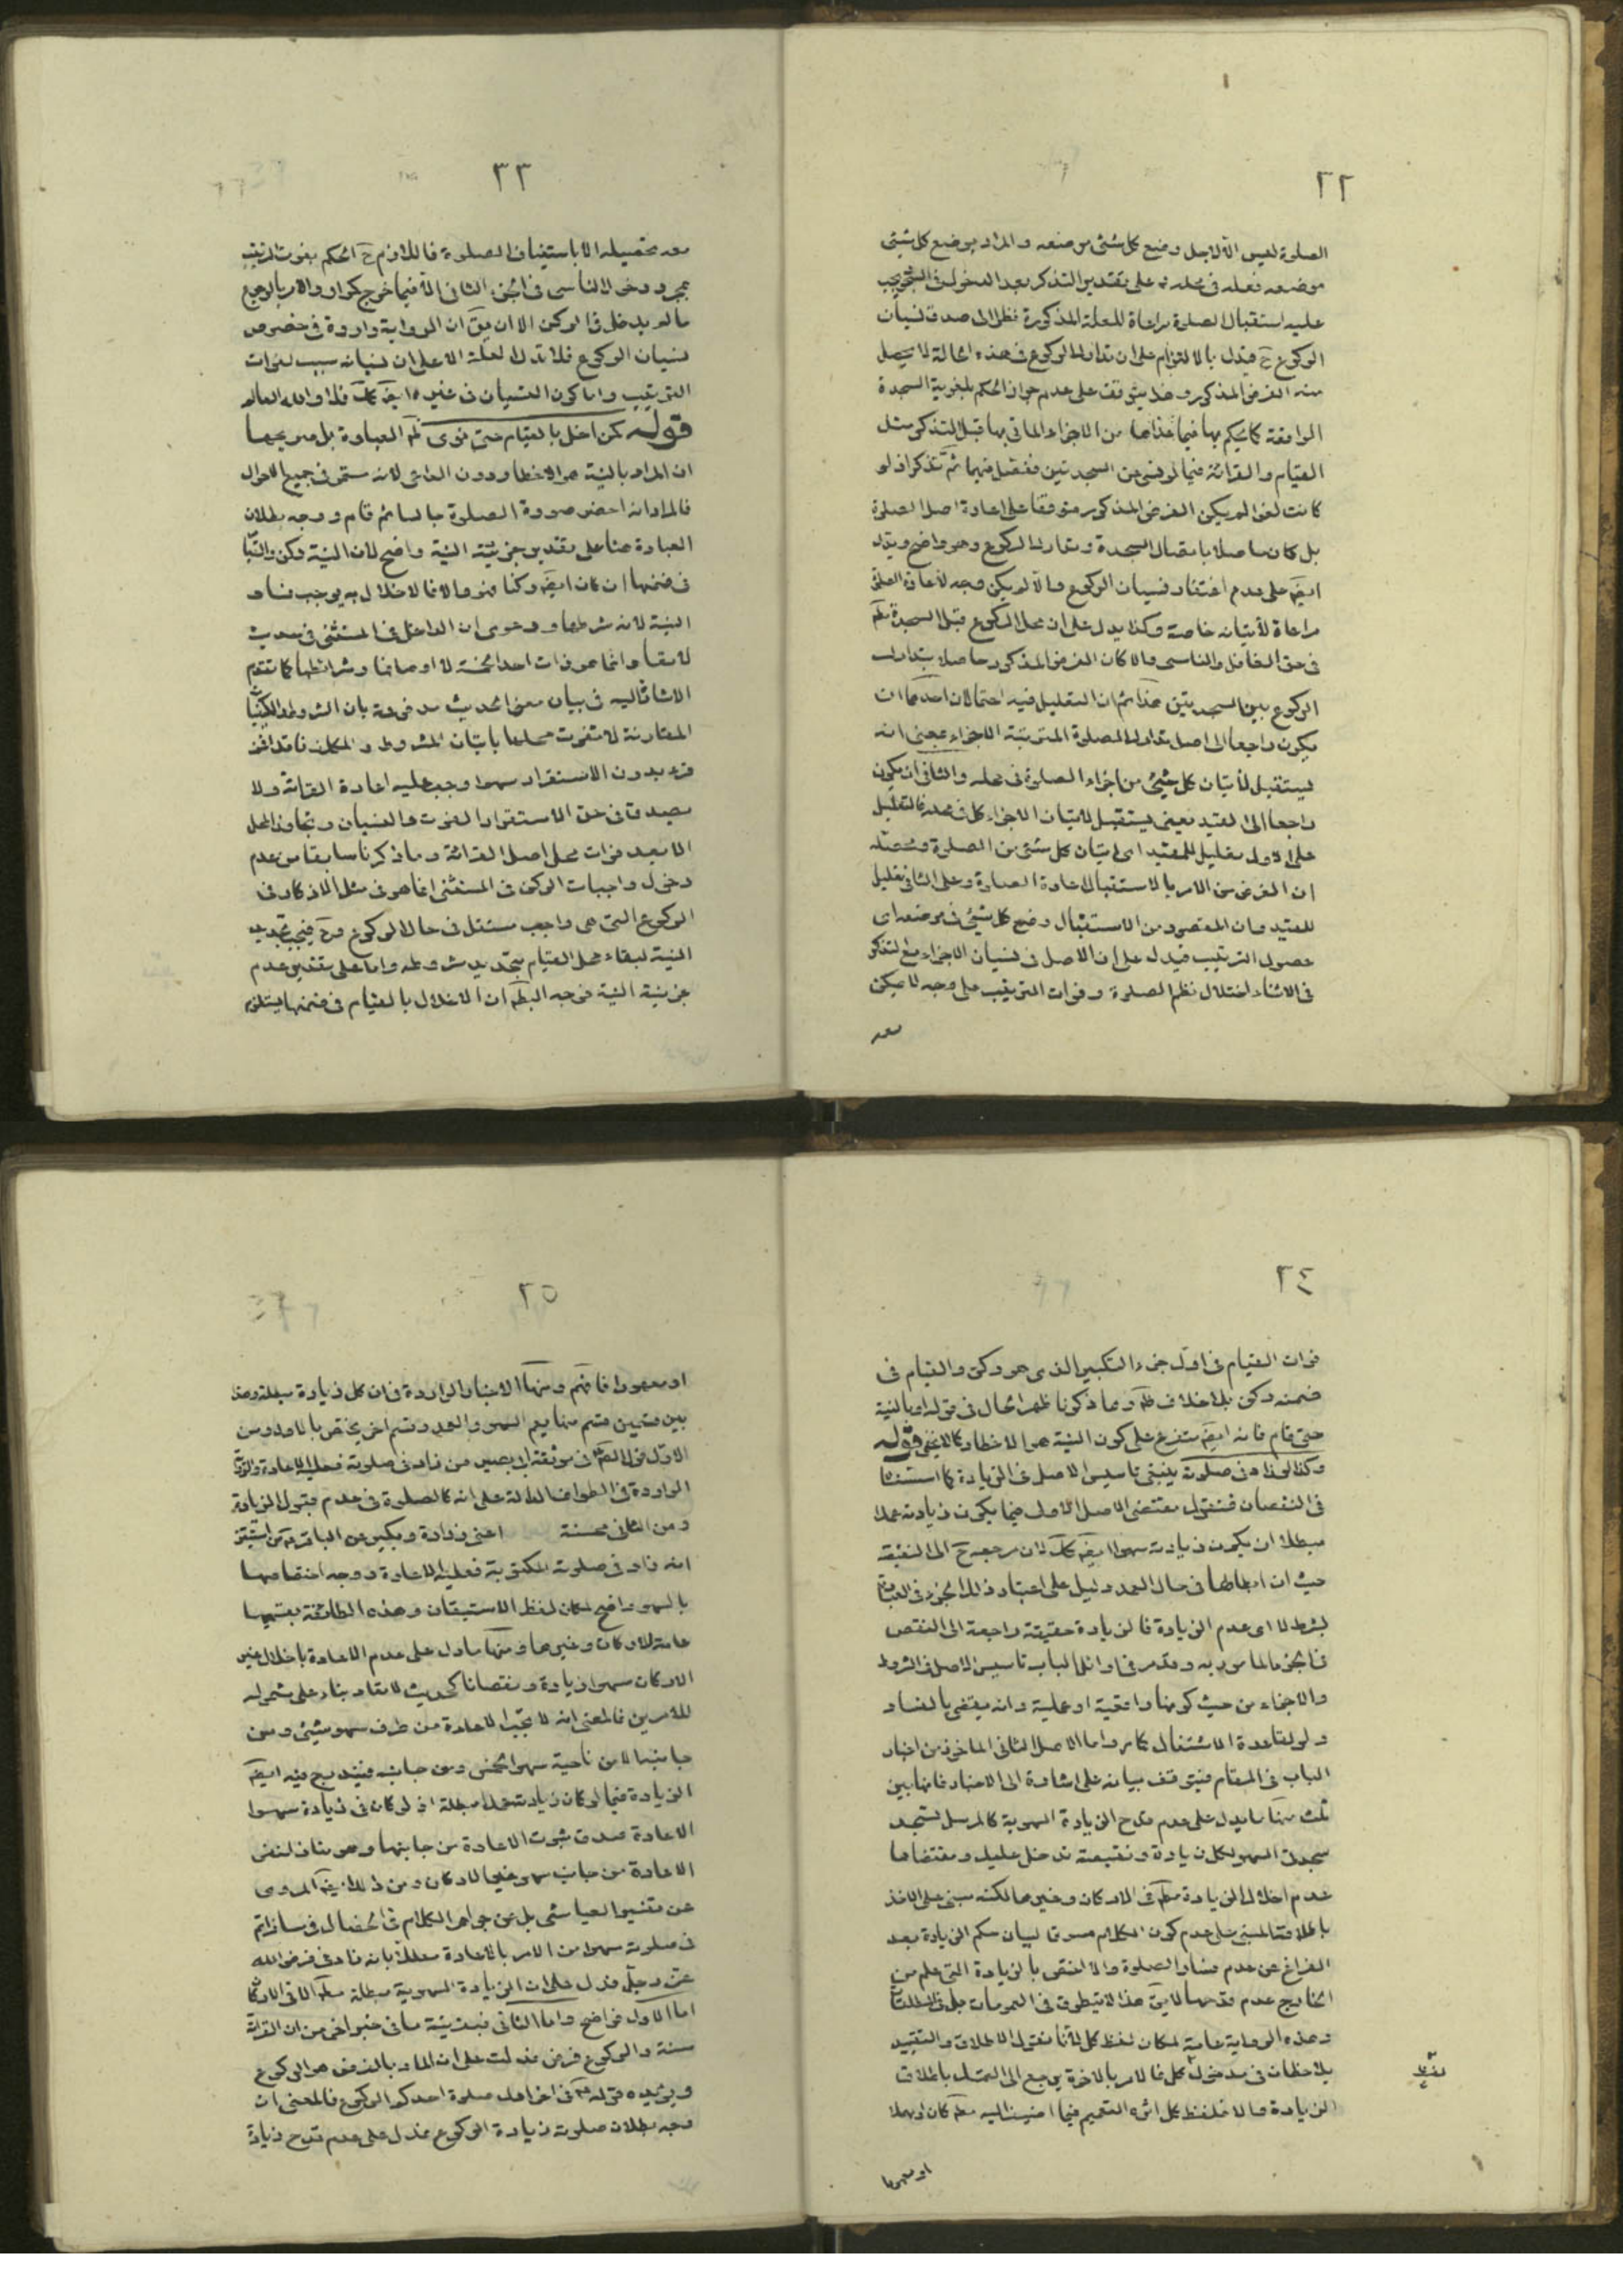 ٢٢
الصلوة ليس الا لاجل وضع كل شئ موضعه والمراد بوضع كل شئ
موضعه فعله في محله فعلى تقدير التذكر بعد الدخول في السجود يجب
عليه استقبال الصلوة مراعاة للعلة المذكورة نظرا الى صدق نسيان
الركوع ح فيدل بالالتزام على ان تدارك الركوع في هذه الحالة لا يحصل
منه الغرض المذكور وهذا يتوقف على عدم جواز الحكم بلغوية السجدة
الواقعة كما يحكم بها فيما عداها من الاجزاء الماتى بها قبل التذكر مثل
القيام والقرائة فيما لو نسى عن السجدتين فغفل فيهما ثم تذكر اذ لو
كانت لغوا لم يكن الغرض المذكور متوقفا على اعادة اصل الصلوة
بل كان حاصلا بابطال السجدة وتدارك الركوع وهو واضح ويدل
ايضا على عدم اغتفار نسيان الركوع والا لم يكن وجه لاعادة الصلوة
مراعاة لأتيانه خاصة وكذا يدل على ان محل الركوع قبل السجدة مطم
في حق الغافل والناسى والا كان الغرض المذكور حاصلا بتدارك
الركوع بين السجدتين هذا ثم ان التعليل فيه احتمالان احدهما ان
يكون راجعا الى اصل تدارك الصلوة المترتبة الاجزاء بمعنى انه
يستقبل لأتيان كل شئ من اجزاء الصلوة في محله والثانى ان يكون
راجعا الى القيد يعنى يستقبل لاتيان الاجزاء كل في محله فالتعليل
على الاول تعليل للمقيد اى اتيان كل شئ من الصلوة ومحصله
ان الغرض من الامر بالاستقبال اعادة الصلوة وعلى الثانى تعليل
للقيد وان المقصود من الاستقبال وضع كل شئ في موضعه اى
حصول الترتيب فيدل على ان الاصل في نسيان الاجزاء مع التذكر
في الاثناء اختلال نظم الصلوة وفوات الترتيب على وجه لا يمكن
معه
٢٣
معه تحصيله الا باستيناف الصلوة فاللازم ح الحكم بفوت الترتيب
بمجرد دخول الناسى في الجزء الثانى الا فيما خرج كموارد الامر بالرجوع
ما لم يدخل في الركن الا ان يق ان الرواية واردة في خصوص
نسيان الركوع فلا تدل العلة الا على ان نسيانه سبب لفوات
الترتيب واما كون النسيان في غيره ايض كك فلا والله العالم
قوله كمن اخل بالقيام حتى نوى ظم العبارة بل صريحها
ان المراد بالنية هو الاخطار دون الداعى لانه مستمر في جميع الاحوال
فالمراد انه احضر صورة الصلوة جالسا ثم قام ووجه بطلان
العبادة هنا على تقدير جزئية النية واضح لان النية ركن والقيام
في ضمنها ان كان ايض ركنا فهو والا فالاخلال به يوجب فساد
النية لانه شرطها ودعوى ان الداخل في المستثنى في حديث
لا تعاد انما هو ذات احد الخمسة لا اوصافها وشرائطها كما تقدم
الاشارة اليه في بيان معنى الحديث مدفوعة بان الشروط
المقارنة لا تفوت محلها باتيان المشروط
فرء بدون الاستقرار سهوا وجب عليه اعادة القرائة ولا
يصدق في حق الاستقرار الفوت والنسيان وتجاوز المحل
الا بعد فوات محل اصل القرائة وما ذكرنا سابقا من عدم
دخول واجبات الركن في المستثنى انما هو في مثل الاذكار في
الركوع التى هى واجب مستقل في حال الركوع وح فيجب تجديد
النية لبقاء محل القيام بتجديد مشروطه واما على تقدير عدم
جزئية النية فوجه البط ان الاخلال بالقيام في ضمنها يستلزم
٢٤
فوات القيام في اول جزء التكبير الذى هو ركن والقيام في
ضمنه ركن بلا خلاف ظم ومما ذكرنا ظهر الحال في قوله او بالنية
حتى قام فانه ايض متفرع على كون النية هو الاخطار كما لا يخفى قوله
وكذا لو زاد في صلوته ينبغى تاسيس الاصل في الزيادة كما اسسنا
في النقصان فنقول مقتضى الاصل الاول فيما يكون زيادته عمدا
مبطلا ان يكون زيادته سهوا ايض كك لان مرجعه ح الى النقيصة
حيث ان ابطالها في حال العمد دليل على اعتبار ذلك الجزء في العبادة
بشرط لا اى عدم الزيادة فالزيادة حقيقة راجعة الى النقص
في الجزء المامور به وقد مر في اوائل الباب تاسيس الاصل في الشروط
والاجزاء من حيث كونها واقعية او علمية وانه يقضى بالفساد
ولو لقاعدة الاشتغال كما مر واما الاصل الثانى الماخوذ من اخبار
الباب في المقام فيتوقف بيانه على اشارة الى الاخبار فانها بين
ثلث منها ما يدل على عدم قدح الزيادة السهوية كالمرسل تسجد
سجدتى السهو لكل زيادة ونقيصة تدخل عليك ومقتضاها
عدم اخلال الزيادة مطم في الاركان وغيرها لكنه مبنى على الاخذ
باطلاقه المبنى على عدم كون الكلام مسوقا لبيان حكم الزيادة بعد
الفراغ عن عدم فساد الصلوة والا لنقص بالزيادة التى علم من
الخارج عدم قدحها لا يق هذا لا يتطرق في العمومات بل في المطلقات
وهذه الرواية عامة لمكان لفظ كل لانا نقول الاطلاق والتقييد
يلاحظان في مدخول كل فالامر بالاخرة يرجع الى التمسك باطلاق
الزيادة والا فلفظ كل اثره التعميم فيما اضيف اليه مطم كان او مهملا
او معهودا
٢٥
او معهودا فافهم ومنها الاخبار الواردة في ان كل زيادة مبطلة وهذا
بين قسمين قسم منها يعم السهو والعمد وقسم اخر يختص بالاول ومن
الاول قوله في موثقة ابى بصير من زاد في صلوته فعليه الاعادة
الواردة في الطواف الدالة على انه كالصلوة في عدم قبول الزيادة
ومن الثانى حسنة اعنى زرارة وبكير عن الباقر من استيقن
انه زاد في صلوته المكتوبة فعليه الاعادة ووجه اختصاصها
بالسهو واضح لمكان لفظ الاستيقان وهذه الطائفة بقسميها
عامة للاركان وغيرها ومنها ما دل على عدم الاعادة باخلال غير
الاركان سهوا زيادة ونقصانا كحديث لا تعاد بناء على شموله
للامرين فالمعنى انه لا تجب الاعادة من طرف سهو شئ ومن
جانبه الا من ناحية سهو الخمس ومن جانبه فيندرج فيه ايض
الزيادة فيما لو كان زيادته عمدا مبطلة اذ لو كان في زيادة سهوا
الاعادة صدق ثبوت الاعادة من جانبها وهو مناف لنفى
الاعادة من جانب سهو غير الاركان ومن ذلك ايض المروى
عن تفسير العياشى بل عن جواهر الكلام في الخصال في
في صلوته سهوا من الامر بالاعادة معللا بانه زاد في فرض الله
عز وجل فدل على ان الزيادة السهوية مبطلة مطم الا في الاركان
اما الاول فواضح واما الثانى فبقرينة ما في خبر اخر من ان القرائة
سنة والركوع فرض فدلت على ان المراد بالفرض هو الركوع
ويؤيده قوله في اخر
وجه بطلان صلوته زيادة الركوع فدل على عدم قدح زيادة